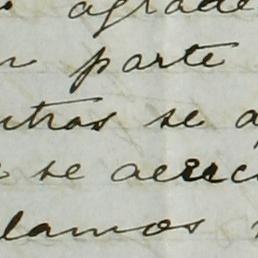 agrade
parte
ntras se a
se aerec
lamos